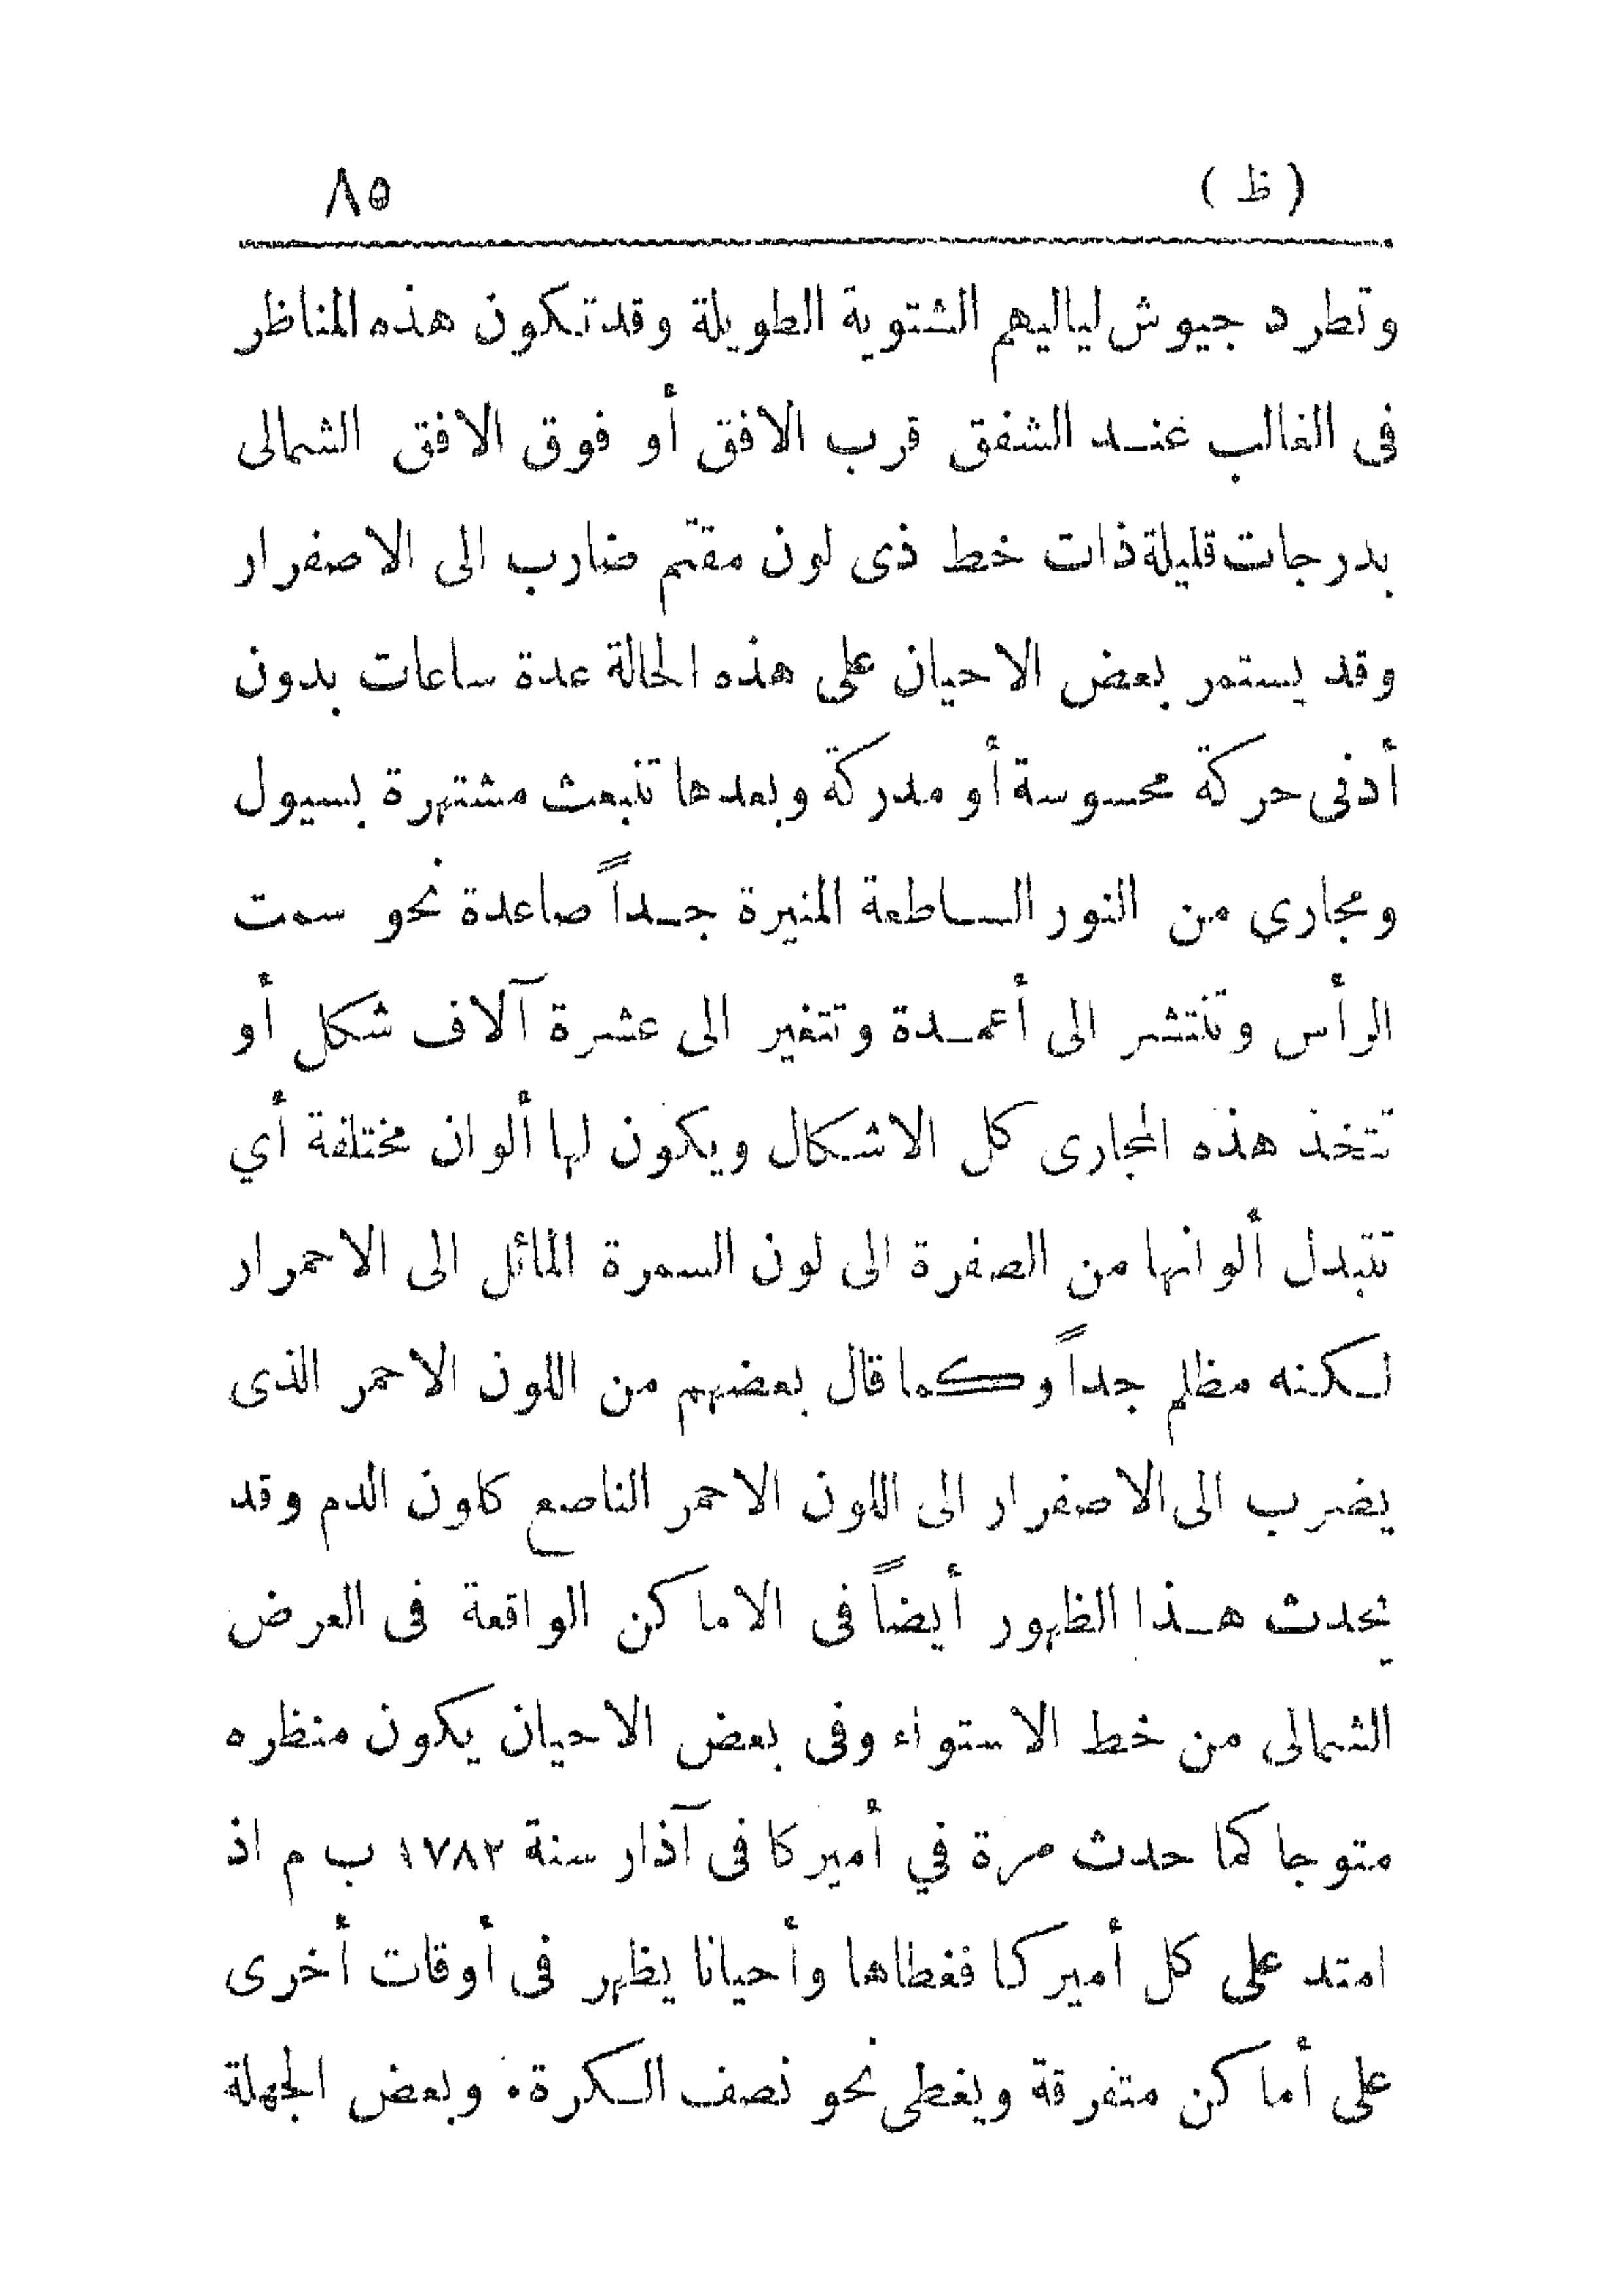 (ظ) ٨٥
وتطرد جيوش لياليهم الشتوية الطويلة وقد تكون هذه المناظر
فى الغالب عند الشفق قرب الافق أو فوق الافق الشمالى
بدرجات قليلة ذات خط ذى لون مقتم ضارب الى الاصفرار
وقد يستمر بعض الاحيان على هذه الحالة عدة ساعات بدون
أدنى حركة محسوسة أو مدركة وبعدها تنبعث مشتهرة بسيول
ومجاري من النور الساطعة المنيرة جداً صاعدة نحو سمت
الرأس وتنتشر الى أعمدة وتتغير الى عشرة آلاف شكل أو
تتخذ هذه المجارى كل الاشكال ويكون لها ألوان مختلفة أي
تتبدل ألوانها من الصفرة الى لون السمرة المائل الى الاحمرار
لكنه مظلم جداً وكما قال بعضهم من اللون الاحمر الذى
يضرب الى الاصفرار الى اللون الاحمر الناصع كاون الدم وقد
يحدث هذا الظهور أيضاً فى الاماكن الواقعة فى العرض
الشمالى من خط الاستواء وفى بعض الاحيان يكون منظره
متوجا كما حدث مرة في أميركا فى آذار سنة ١٧٨٢ ب م اذ
امتد على كل أميركا فغطاها وأحيانا يظهر فى أوقات أخرى
على أماكن متفرقة ويغطى نحو نصف الكرة. وبعض الجهلة